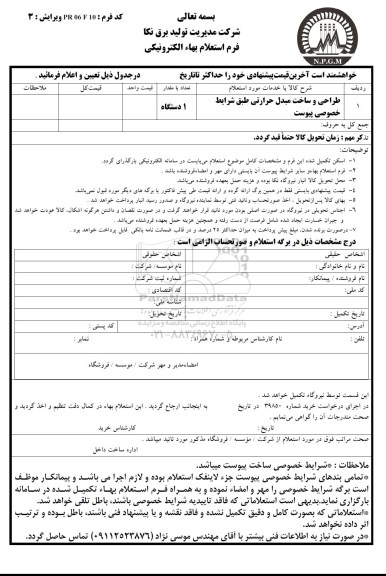 بسمه تعالی
کد فرم : PR 06 F 10 ویرایش : 3
شرکت مدیریت تولید برق نکا
فرم استعلام بهاء الکترونیکی
N.P.G.M
خواهشمند است آخرین‌قیمت‌پیشنهادی خود را حداکثر تاتاریخ درجدول ذیل تعیین و اعلام فرمائید .
ردیف شرح کالا یا خدمات مورد استعلام تعداد یا مقدار قیمت واحد قیمت‌کل ملاحظات
۱ طراحی و ساخت مبدل حرارتی طبق شرایط خصوصی پیوست ۱ دستگاه
جمع کل به حروف:
تذکر مهم : زمان تحویل کالا حتماً قید گردد.
توضیحات:
۱- اسکن تکمیل شده این فرم و مشخصات کامل موضوع استعلام می‌بایست در سامانه الکترونیکی بارگذاری گردد.
۲- فرم استعلام بهاءو سایر شرایط پیوست آن بایستی دارای مهر و امضاءفروشنده باشد .
۳- محل تحویل کالا انبار نیروگاه نکا بوده و هزینه حمل بعهده فروشنده می‌باشد.
۴- قیمت پیشنهادی بایستی فقط در همین برگ ارائه گردد و ارائه قیمت طی پیش فاکتور یا برگه های دیگر مورد قبول نمی‌باشد.
۵- بهای کالا پس‌ازتحویل ، اخذ صورتحساب وتائید فنی توسط نماینده نیروگاه و صدور رسید انبار پرداخت خواهد شد .
۶- اجناس تحویلی در نیروگاه در صورت اصلی بودن مورد تائید قرار خواهند گرفت و در صورت نقصان و داشتن هرگونه اشکال، کالا عودت خواهد شد
و جبران خسارت ایجاد شده شامل فرصت از دست رفته و همچنین هزینه حمل بعهده فروشنده می‌باشد .
۷- درصورت برنده شدن، مبلغ پیش پرداخت به میزان حداکثر ۲۵ درصد و در قالب ضمانت نامه بانکی قابل پرداخت خواهد بود .
درج مشخصات ذیل در برگه استعلام و صورتحساب الزامی است :
اشخاص حقیقی اشخاص حقوقی
نام و نام خانوادگی : نام موسسه/ شرکت :
نام فروشنده / پیمانکار: شماره ثبت شرکت :
کد ملی: کد اقتصادی :
شناسه ملی:
تاریخ تکمیل : تاریخ تحویل:
آدرس: کد پستی :
تلفن : نام کارشناس مربوطه و شماره همراه: نمابر :
ParsNamadData
پایگاه اطلاع رسانی مناقصه و مزایده
۰۲۱-۸۸۳۴۹۶۷۰-۵
امضاءمدیر و مهر شرکت / موسسه / فروشگاه
این قسمت توسط نیروگاه تکمیل خواهد شد .
در اجرای درخواست خرید شماره ۳۹۸۵۰ در تاریخ به اینجانب ارجاع گردید . این استعلام بهاء در کمال دقت تنظیم و اخذ گردید و
صحت مندرجات آن را گواهی می‌نمایم .
تاریخ : کارشناس خرید
صحت مراتب فوق در مورد استعلام از شرکت / مؤسسه / فروشگاه مذکور مورد تائید میباشد .
اداره ساخت داخل
ملاحظات : *شرایط خصوصی ساخت پیوست میباشد.
*تمامی بندهای شرایط خصوصی پیوست جزء لاینفک استعلام بوده و لازم اجرا می باشد و پیمانکار موظف
است برگه شرایط خصوصی را مهر و امضاء نموده و به همراه فرم استعلام بهاء تکمیل شده در سامانه
بارگزاری نماید.بدیهی است استعلاماتی که فاقد تاییدیه شرایط خصوصی باشند، باطل تلقی خواهد شد.
*استعلاماتی که بصورت کامل و دقیق تکمیل نشده و فاقد نقشه و یا پیشنهاد فنی باشند، باطل بوده و ترتیب
اثر داده نخواهد شد.
*در صورت نیاز به اطلاعات فنی بیشتر با آقای مهندس موسی نژاد (۰۹۱۱۲۵۲۳۸۷۶) تماس حاصل گردد.